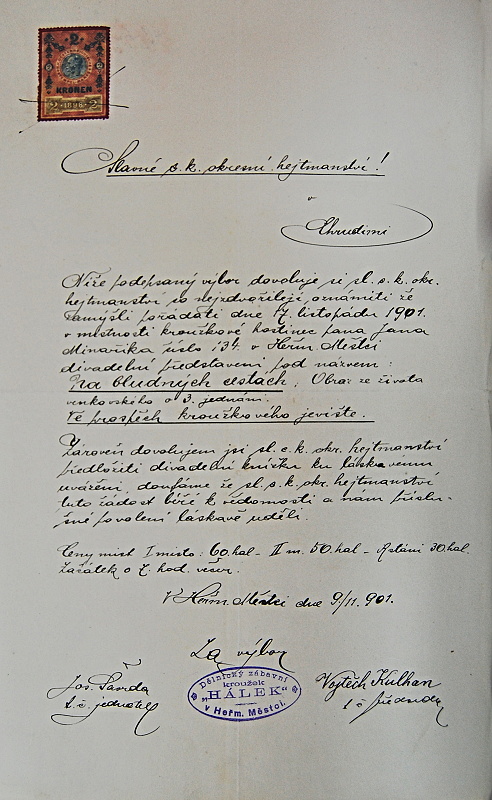 2
KRONEN
2 1898 2
Slavné c. k. okresní hejtmanství!
v
Chrudimi
Níže podepsaný výbor dovoluje si sl. c. k. okr.
hejtmanství co nejzdvořileji oznámiti že
zamýšlí pořádati dne 17. listopadu 1901
v místnosti kroužkové hostinec pana Jana
Minaříka číslo 134 v Heřm. Městci
divadelní představení pod názvem:
Na bludných cestách, Obraz ze života
venkovského o 3. jednání.
Ve prospěch kroužkového jeviště.
Zároveň dovolujem jsi sl. c. k. okr. hejtmanství
předložiti divadelní knížku ku láskavému
uvážení, doufáme že sl. c. k. okr. hejtmanství
tuto žádost béře k vědomosti a nám přísluš-
šné povolení láskavě udělí.
Ceny míst I místo: 60 hal - II m. 50 hal - k stání 30 hal.
Začátek o 7. hod. večer.
V Heřm. Městci dne 9/11. 901.
Za výbor
Jos.
t. č. jednatel
Dělnický zábavní
kroužek
„HÁLEK“
v Heřm. Městci.
Vojtěch Kulhan
t č předseda